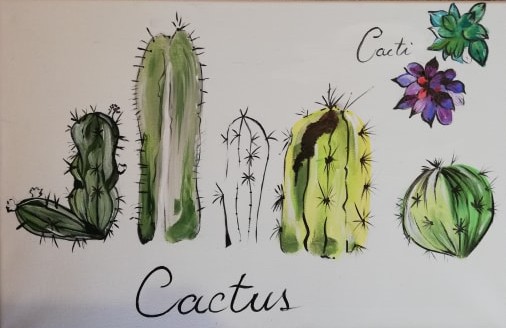 Cacti
Cactus